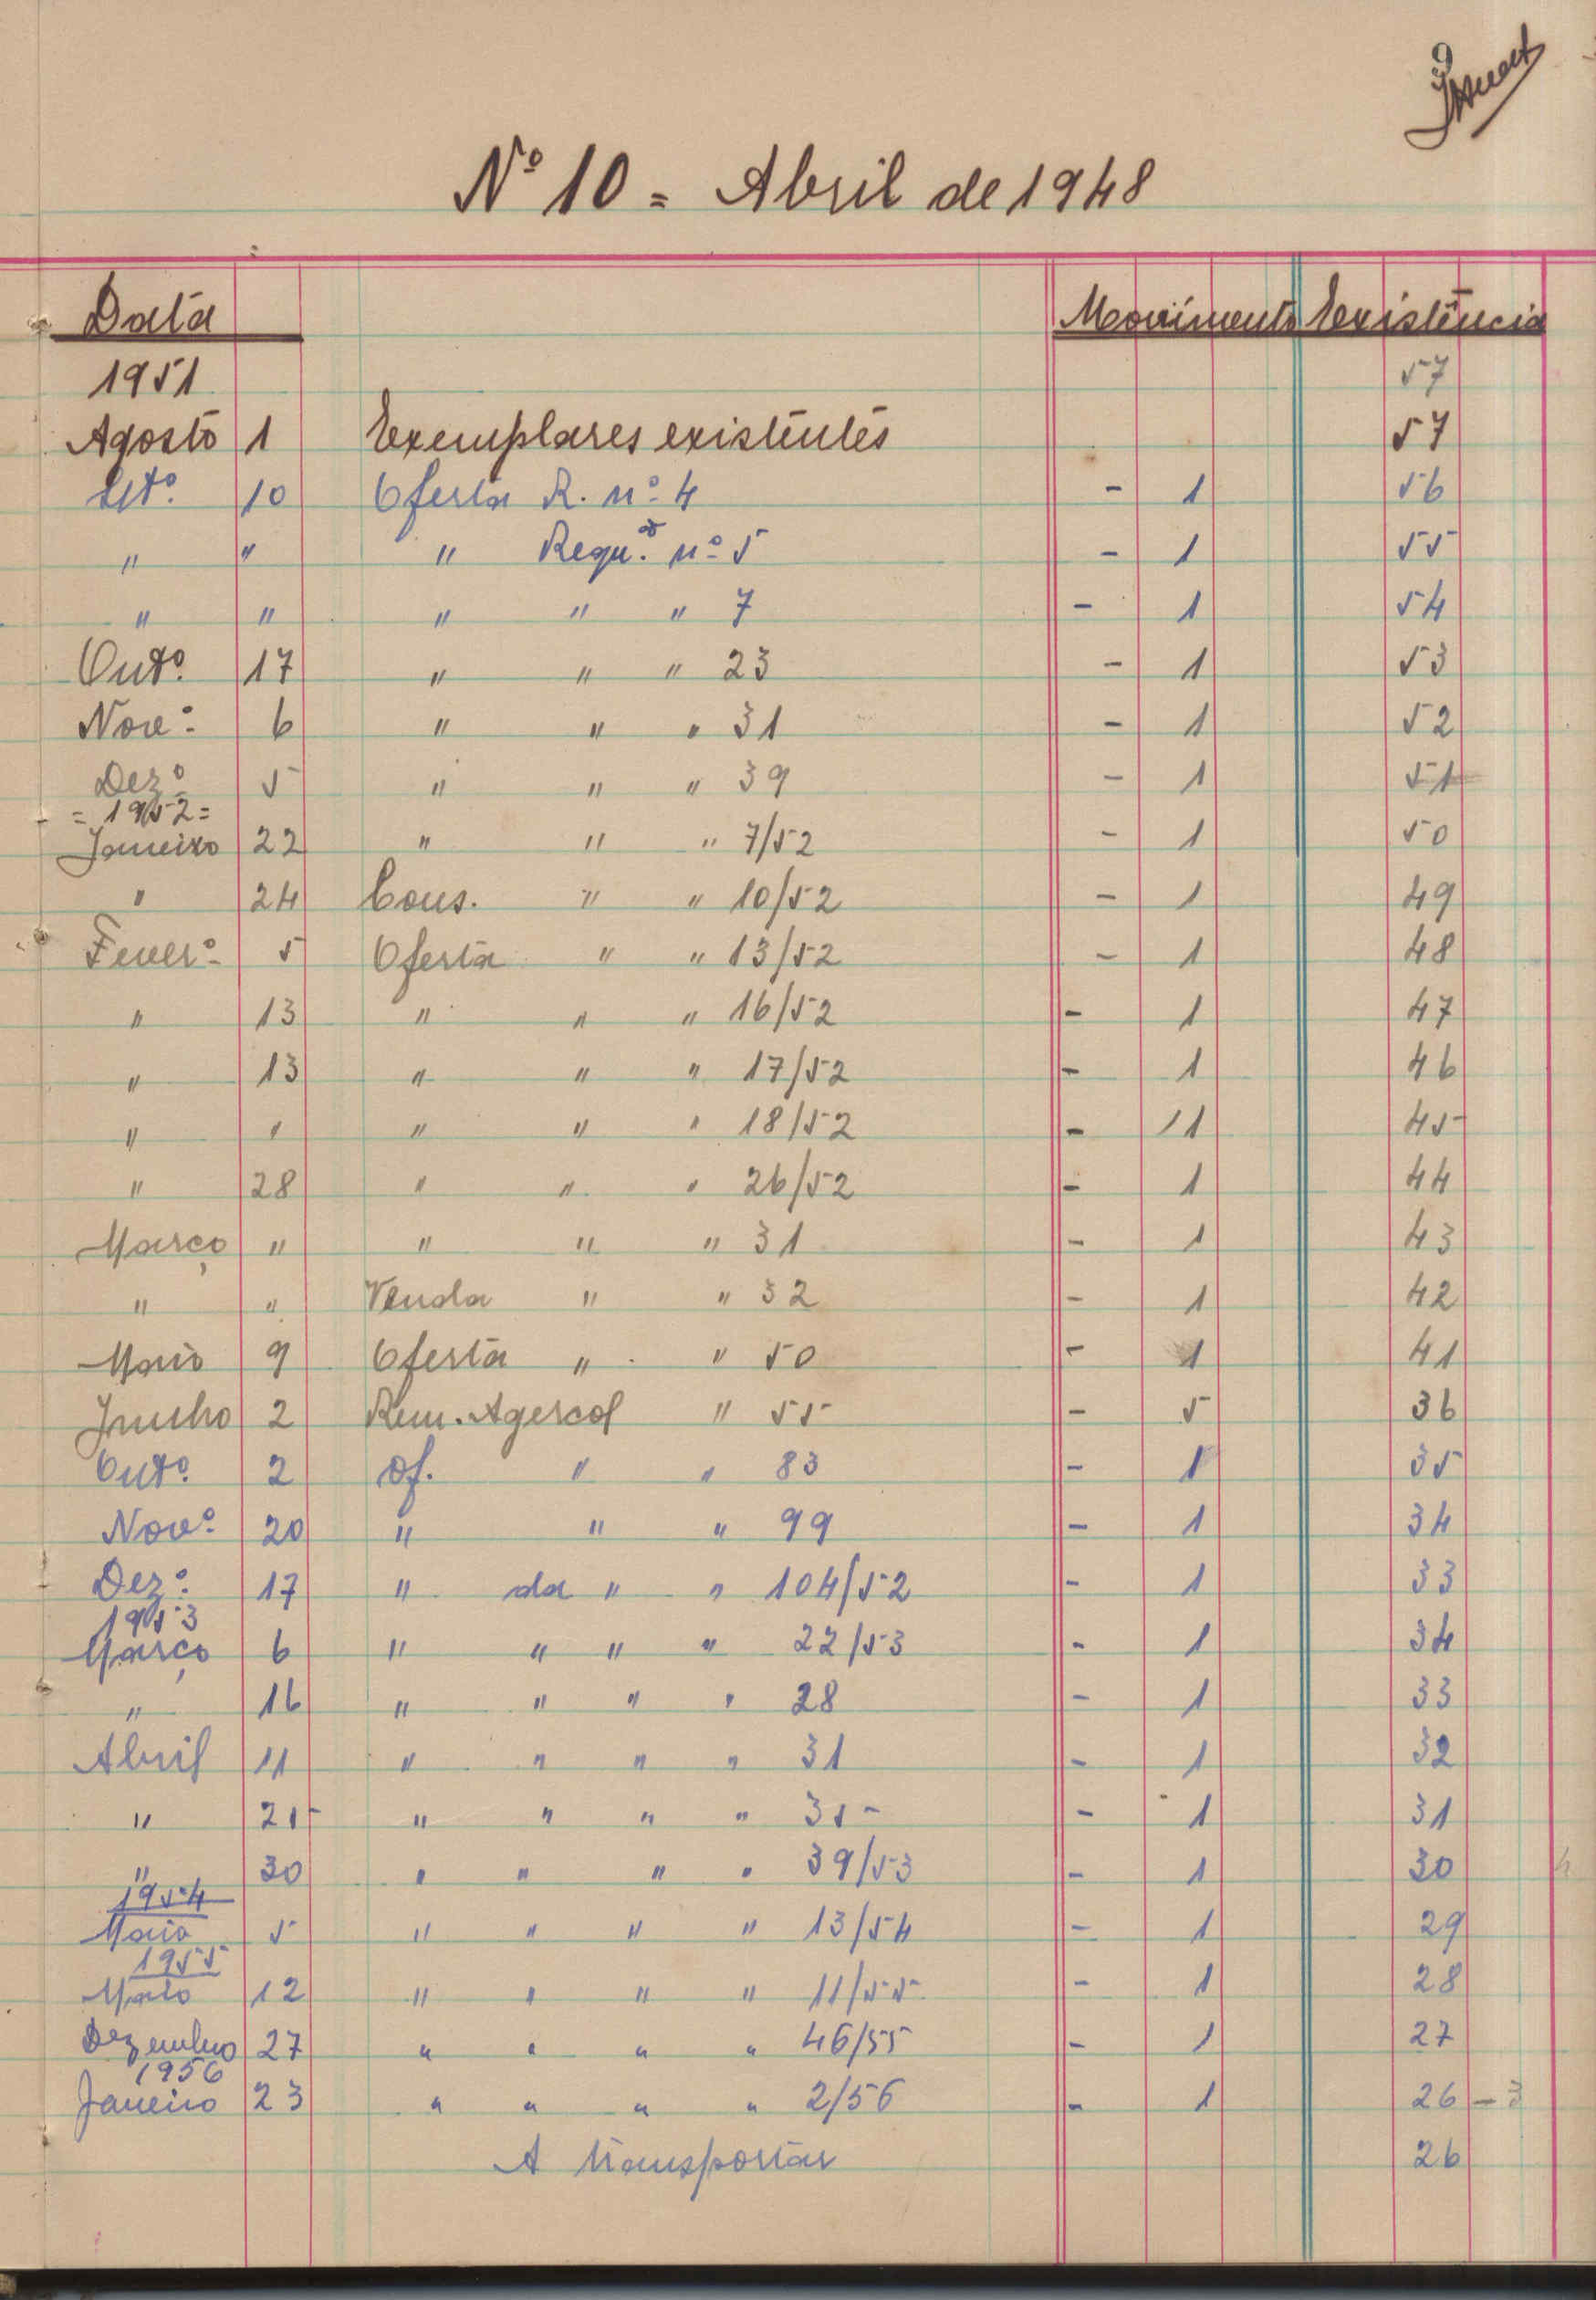 9
Nº 10 = Abril de 1948
Data Movimento Existência
1951 57
Agosto 1 Exemplares existentes 57
Setº. 10 Oferta R. nº 4 - 1 56
" " " Requ.ão nº 5 - 1 55
" " " " " 7 - 1 54
Outº. 17 " " " 23 - 1 53
Novº. 6 " " " 31 - 1 52
Dezº 5 " " " 39 - 1 51
= 1952 =
Janeiro 22 " " " 7/52 - 1 50
" 24 Cons. " " 10/52 - 1 49
Feverº 5 Oferta " " 13/52 - 1 48
" 13 " " " 16/52 - 1 47
" 13 " " " 17/52 - 1 46
" " " " " 18/52 - 11 45
" 28 " " " 26/52 - 1 44
Março " " " " 31 - 1 43
" " Venda " " 32 - 1 42
Maio 9 Oferta " " 50 - 1 41
Junho 2 Rem. Agercol " 55 - 5 36
Outº. 2 Of. " " 83 - 1 35
Novº. 20 " " " 99 - 1 34
Dezº. 17 " da " " 104/52 - 1 33
1953
Março 6 " " " " 22/53 - 1 34
" 16 " " " " 28 - 1 33
Abril 11 " " " " 31 - 1 32
" 25 " " " " 35 - 1 31
" 30 " " " " 39/53 - 1 30
1954
Maio 5 " " " " 13/54 - 1 29
1955
Maio 12 " " " " 11/55 - 1 28
Dezembro 27 " " " " 46/55 - 1 27
1956
Janeiro 23 " " " " 2/56 - 1 26 - 3
A transportar 26